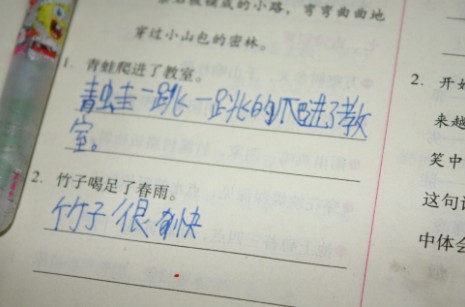 小路，弯弯曲曲地
穿过小山包的密林。
1. 青蛙爬进了教室。
青蛙一跳一跳的爬进了教
室。
2. 竹子喝足了春雨。
竹子很愉快
2. 开始
来越
笑中
这句话
中体会